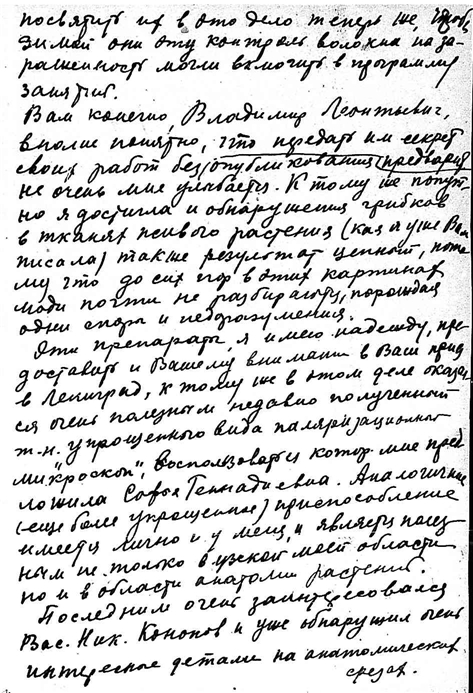 посвятить их в это дело теперь же, чтобы
зимой они эту контроль волокна на за-
раженность могли включить в программу
занятий.
Вам конечно, Владимир Леонтьевич,
вполне понятно, что передать им секрет
своих работ без опубликования (предварит)
не очень мне улыбается. К тому же попут-
но я достигла и обнаружения грибков
в тканях живого растения (как я уже Вам
писала) также результат ценный, пото-
му что до сих пор в этих картинах
люди почти не разбирались, порождая
одни споры и недоразумения.
Эти препараты, я имею надежду, пре-
доставить и Вашему вниманию в Ваш приезд
в Ленинград, к тому же в этом деле оказал
ся очень полезным недавно полученный
т.н. упрощенного вида поляризационный
"микроскоп", воспользоваться котор. мне пред
ложила Софья Геннадиевна. Аналогичное
(еще более упрощенное) приспособление
имеется лично и у меня, и является полез
ным не только в узкой моей области
но и в области анатомии растений.
Последним очень заинтересовался
Вас. Ник. Кононов и уже обнаружил очень
интересные детали на анатомических
срезах.